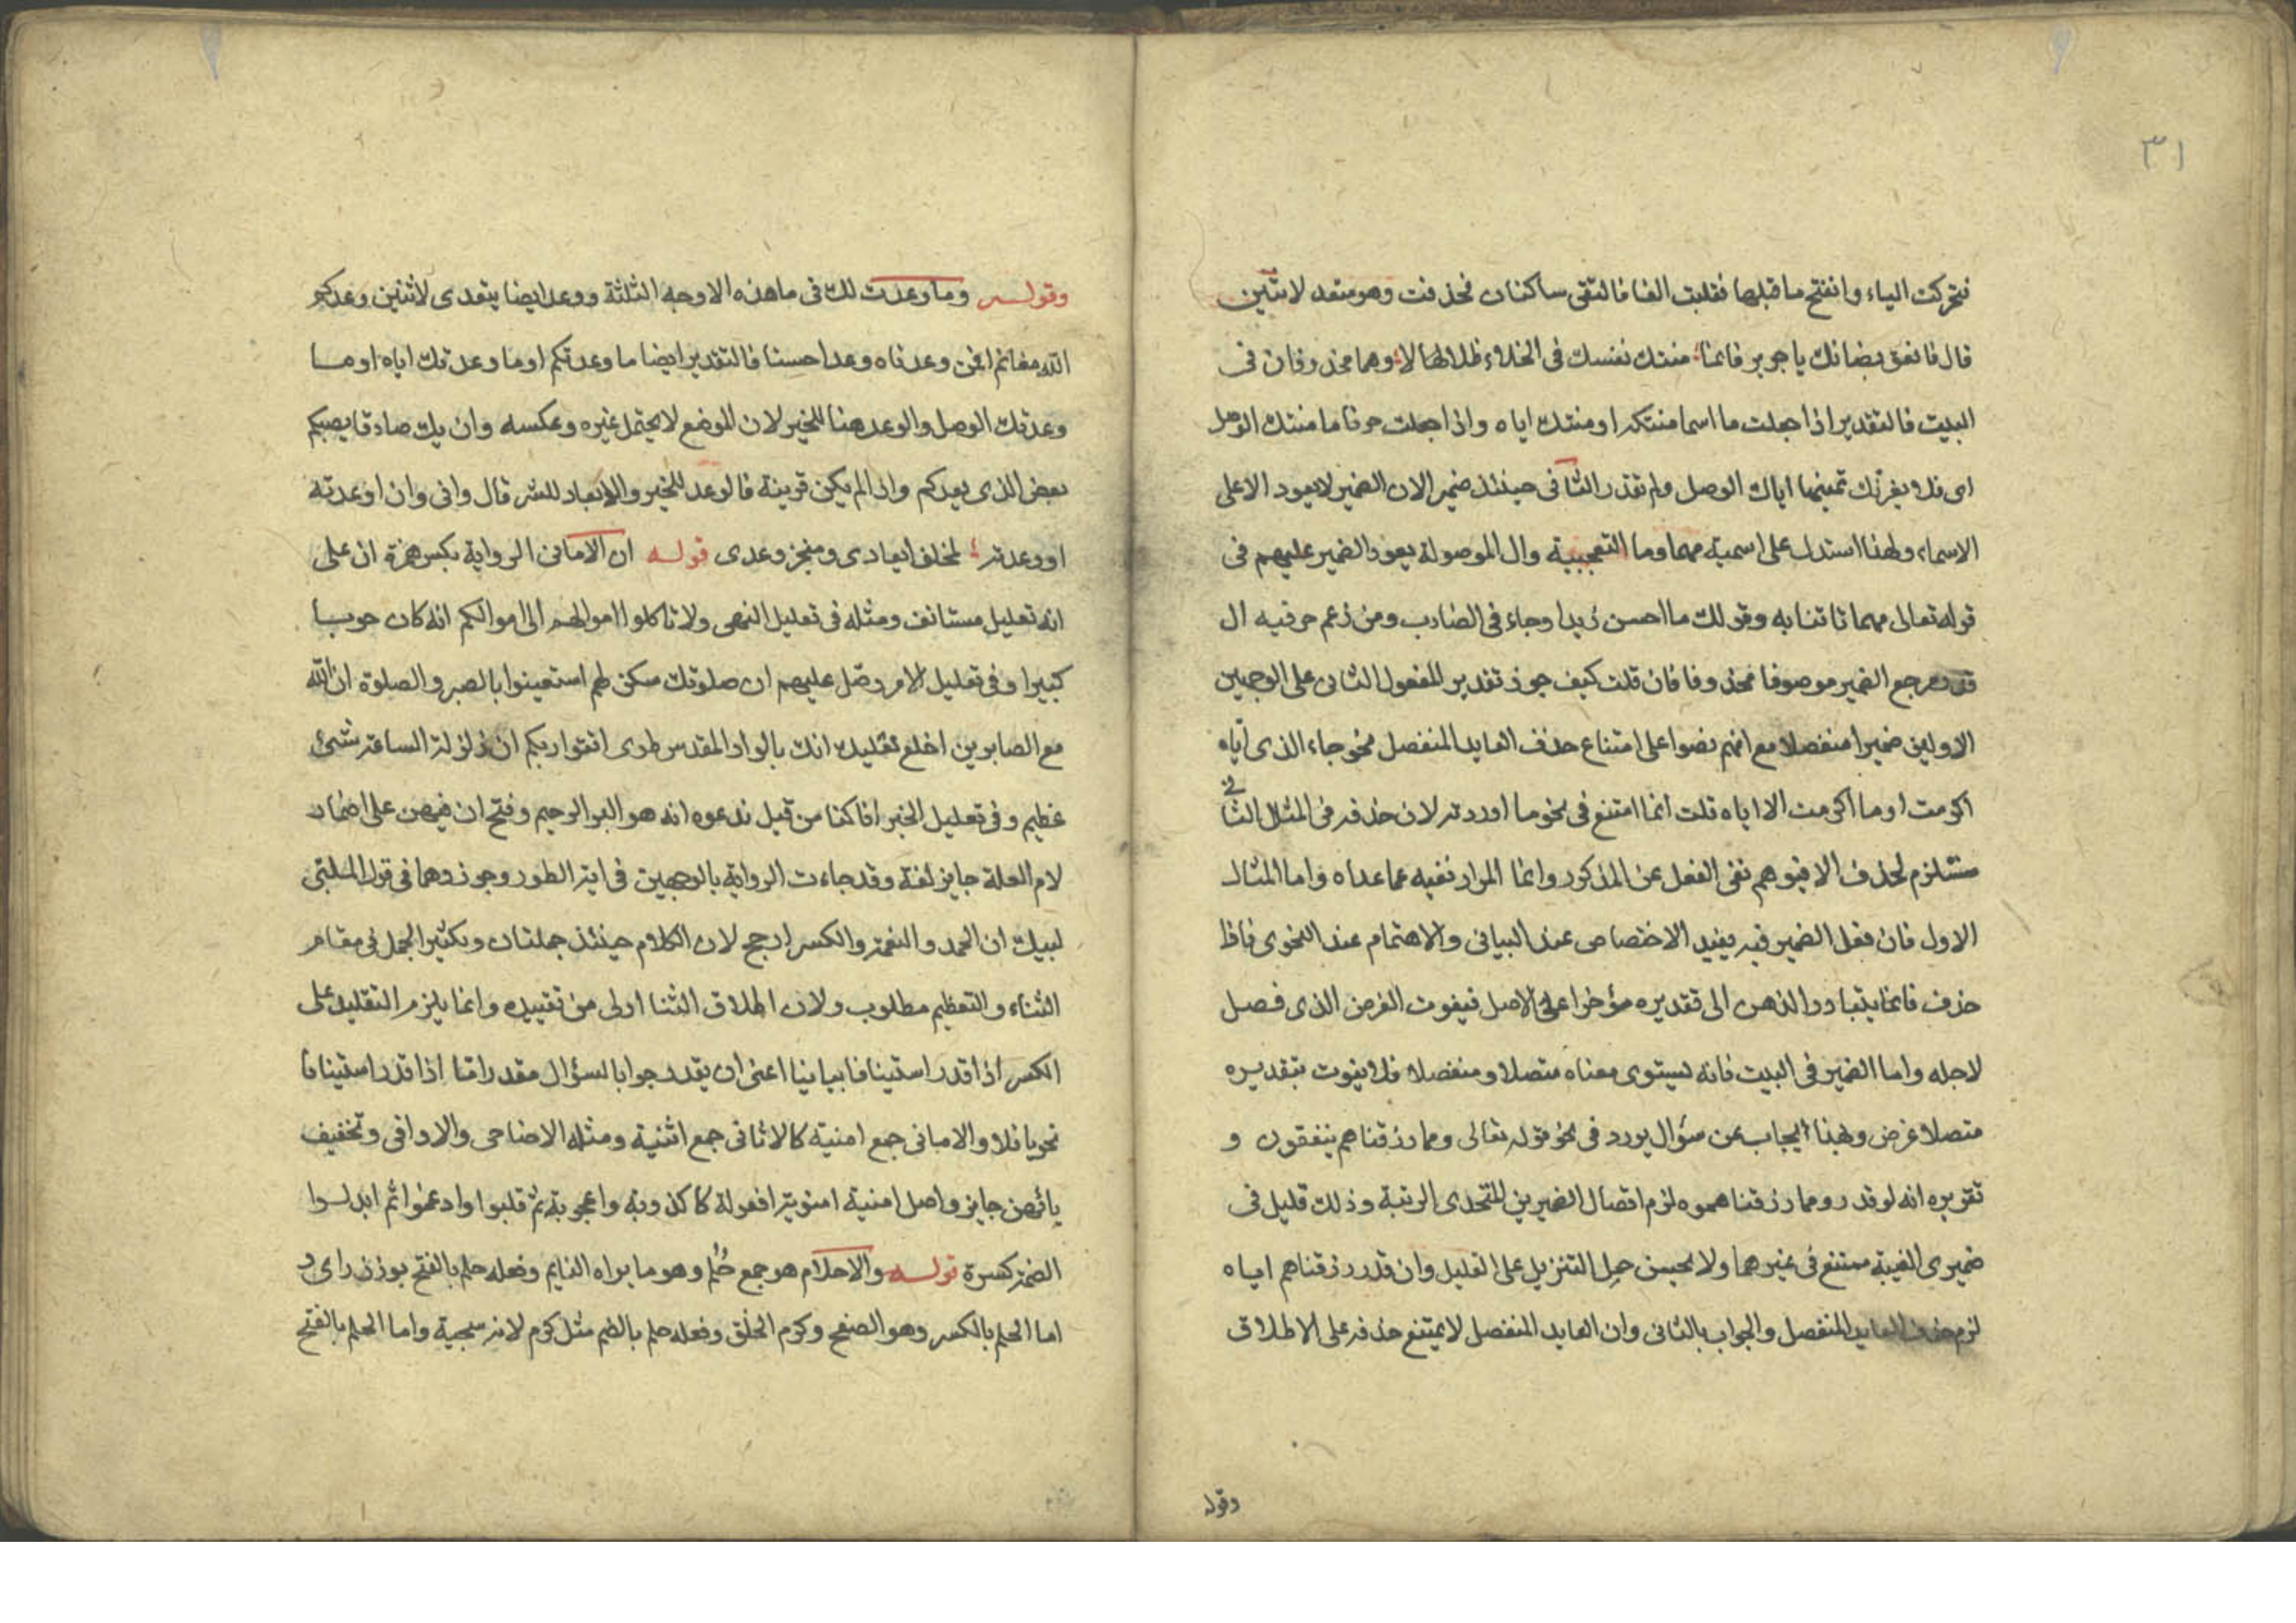 ٣١
فتحركت الياء وانفتح ما قبلها فقلبت الفا فالتقى ساكنان فحذفت وهو متعد لاثنين
قال فانعق بضانك يا جرير فانما منتك نفسك فى الخلاء ظلالا وهما محذوفان فى
البيت فالتقدير اذا جعلت ما اسما منتكه او منتك اياه واذا جعلت حرفا ما منتك الوصل
اى فلا يغرنك تمنيها اياك الوصل ولم تقدر الثانى حينئذ ضمير الان الضمير لا يعود الا على
الاسماء ولهذا استدل على اسمية مهما وما التعجبية وال الموصولة بعود الضمير عليهم فى
قوله تعالى مهما تاتنا به وقولك ما احسن زيدا وجاءنى الضارب ومن زعم حرفيه ال
قدر مرجع الضمير موصوفا محذوفا فان قلت كيف جوز تقدير المفعول الثانى على الوجهين
الاولين ضميرا منفصلا مع انهم نصوا على امتناع حذف العايد المنفصل نحو جاء الذى اياه
اكرمت او ما اكرمت الا اياه قلت انما امتنع فى نحو ما اوردته لان حذفه فى المثال الثانى
مستلزم لحذف الا فيوهم نفى الفعل عن المذكور وانما المراد نفيه عما عداه واما المثال
الاول فان فصل الضمير فيه يفيد الاختصاص عند البيانى والاهتمام عند النحوى فاذا
حذف فانما يتبادر الذهن الى تقديره مؤخرا على الاصل فيفوت الغرض الذى فصل
لاجله واما الضمير فى البيت فانه يستوى معناه متصلا ومنفصلا فلا يفوت بتقديره
متصلا غرض وبهذا يجاب عن سؤال يورد فى نحو قوله تعالى ومما رزقناهم ينفقون و
تقريره انه لو قدر ومما رزقناهموه لزم اتصال الضميرين المتحدى الرتبة وذلك قليل فى
ضميرى الغيبة ممتنع فى غيرهما ولا يحسن حمل التنزيل على القليل وان قدر رزقناهم اياه
لزم حذف العايد المنفصل والجواب بالثانى وان العايد المنفصل لا يمتنع حذفه على الاطلاق
وقوله
وقوله وما وعدت لك فى ما هذه الاوجه الثلثة ووعد ايضا يتعدى لاثنين وعدكم
الله مغانم افمن وعدناه وعدا حسنا فالتقدير ايضا ما وعدتكم او ما وعدتك اياه او ما
وعدتك الوصل والوعد هنا للخير لان الموضع لا يحتمل غيره وعكسه وان يك صادقا يصبكم
بعض الذى يعدكم واذا لم يكن قرينة فالوعد للخير والايعاد للشر قال وانى وان اوعدته
او وعدته لمخلف ايعادى ومنجز وعدى قوله ان الامانى الرواية بكسر همزة ان على
انه تعليل مستانف ومثله فى تعليل النهى ولا تاكلوا اموالهم الى اموالكم انه كان حوبا
كبيرا وفى تعليل الامر وصل عليهم ان صلوتك سكن لهم استعينوا بالصبر والصلوة ان الله
مع الصابرين اخلع نعليك انك بالواد المقدس طوى اتقوا ربكم ان زلزلة الساعة شئ
عظيم وفى تعليل الخبر انا كنا من قبل ندعوه انه هو البر الرحيم وفتح ان فيهن على اضمار
لام العلة جايز لغة وقد جاءت الرواية بالوجهين فى اية الطور وجوزوهما فى قول الملبى
لبيك ان الحمد والنعمة والكسر ارجح لان الكلام حينئذ جملتان وتكثير الجمل فى مقام
الثناء والتعظيم مطلوب ولان اطلاق الثنا اولى من تقييده وانما يلزم التقليل على
الكسر اذا قدر استينافا بيانيا اعنى ان يقدر جوابا لسؤال مقدر امّا اذا قدر استينافا
نحويا فلا والامانى جمع امنية كالاثافى جمع اثفية ومثله الاضاحى والاواقى وتخفيف
يائهن جايز واصل امنية امنوية افعولة كاكذوبة واعجوبة ثم قلبوا وادغموا ثم ابدلوا
الضمة كسرة قوله والاحلام هو جمع حُلُم وهو ما يراه النايم وفعله حلم بالفتح بوزن راى و
اما الحلم بالكسر وهو الصفح وكرم الخلق وفعله حلم بالضم مثل كرم لانه سجية واما الحلم بالفتح